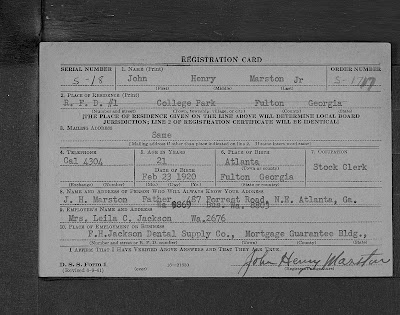 REGISTRATION CARD
SERIAL NUMBER 1. NAME (Print) ORDER NUMBER
S-18 John Henry Marston Jr
(First) (Middle) (Last)
2. PLACE OF RESIDENCE (Print)
R. F. D. #1 College Park Fulton Georgia
(Number and street) (Town, township, village, or city) (County) (State)
[THE PLACE OF RESIDENCE GIVEN ON THE LINE ABOVE WILL DETERMINE LOCAL BOARD
JURISDICTION; LINE 2 OF REGISTRATION CERTIFICATE WILL BE IDENTICAL]
3. MAILING ADDRESS
Same
[Mailing address if other than place indicated on line 2. If same insert word same]
4. TELEPHONE 5. AGE IN YEARS 6. PLACE OF BIRTH 7. OCCUPATION
Cal 4304 21 Atlanta Stock Clerk
DATE OF BIRTH (Town or county)
Feb 23 1920 Fulton Georgia
(Exchange) (Number) (Mo.) (Day) (Yr.) (State or country)
8. NAME AND ADDRESS OF PERSON WHO WILL ALWAYS KNOW YOUR ADDRESS
J. H. Marston Father 487 Forrest Road, N.E. Atlanta, Ga.
9. EMPLOYER'S NAME AND ADDRESS
Mrs. Leila C. Jackson Wa.2676
10. PLACE OF EMPLOYMENT OR BUSINESS
F.H.Jackson Dental Supply Co., Mortgage Guarantee Bldg.,
(Number and street or R. F. D. number) (Town) (County) (State)
I AFFIRM THAT I HAVE VERIFIED ABOVE ANSWERS AND THAT THEY ARE TRUE.
D. S. S. Form 1
John Henry Marston